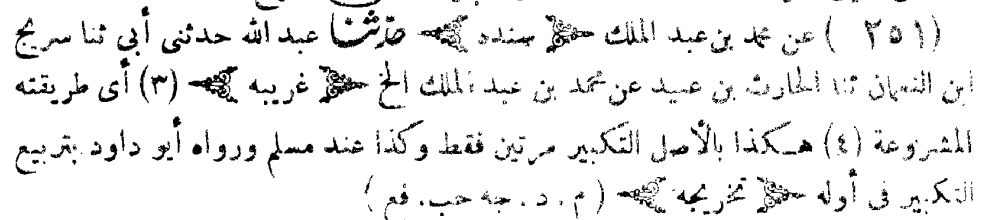 (٢٥١) عن محمد بن عبد الملك ﴿سنده﴾ حدثنا عبد الله حدثنى أبي ثنا سريج
ابن النعمان ثنا الحارث بن عبيد عن محمد بن عبد الملك الخ ﴿غريبه﴾ (٣) أى طريقته
المشروعة (٤) هكذا بالأصل التكبير مرتين فقط وكذا عند مسلم ورواه أبو داود بتربيع
التكبير فى أوله ﴿تخريجه﴾ (م . د . جه حب . فع)